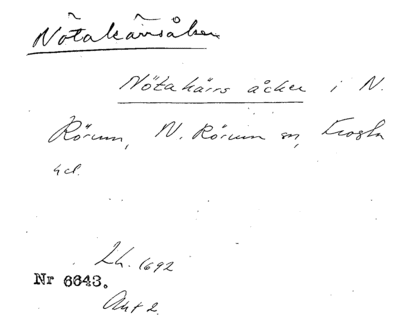 Nötakärrsåker
Nötakärrs åcker i N.
Rörum, N. Rörum sn, Frosta
hd.
Lh. 1692
Nr 6643.
Akt 2.